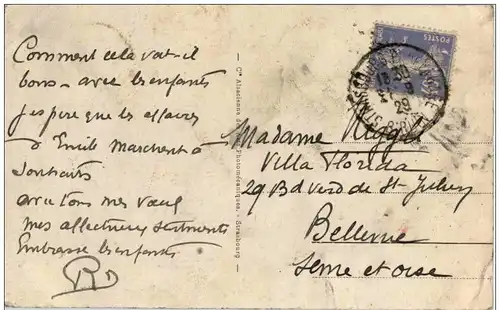 Comment cela vat-il
bons - avec les enfants
j'espère que les affaires
d'Emile marchent à
souhaits
avec tous mes vœux
mes affectueux sentiments
Embrasse les enfants
R
Cie Alsacienne
Strasbourg
POSTES
1830
9
29
Madame
Villa Florida
29 Bd verd de St Julien
Bellevue
Seine et oise